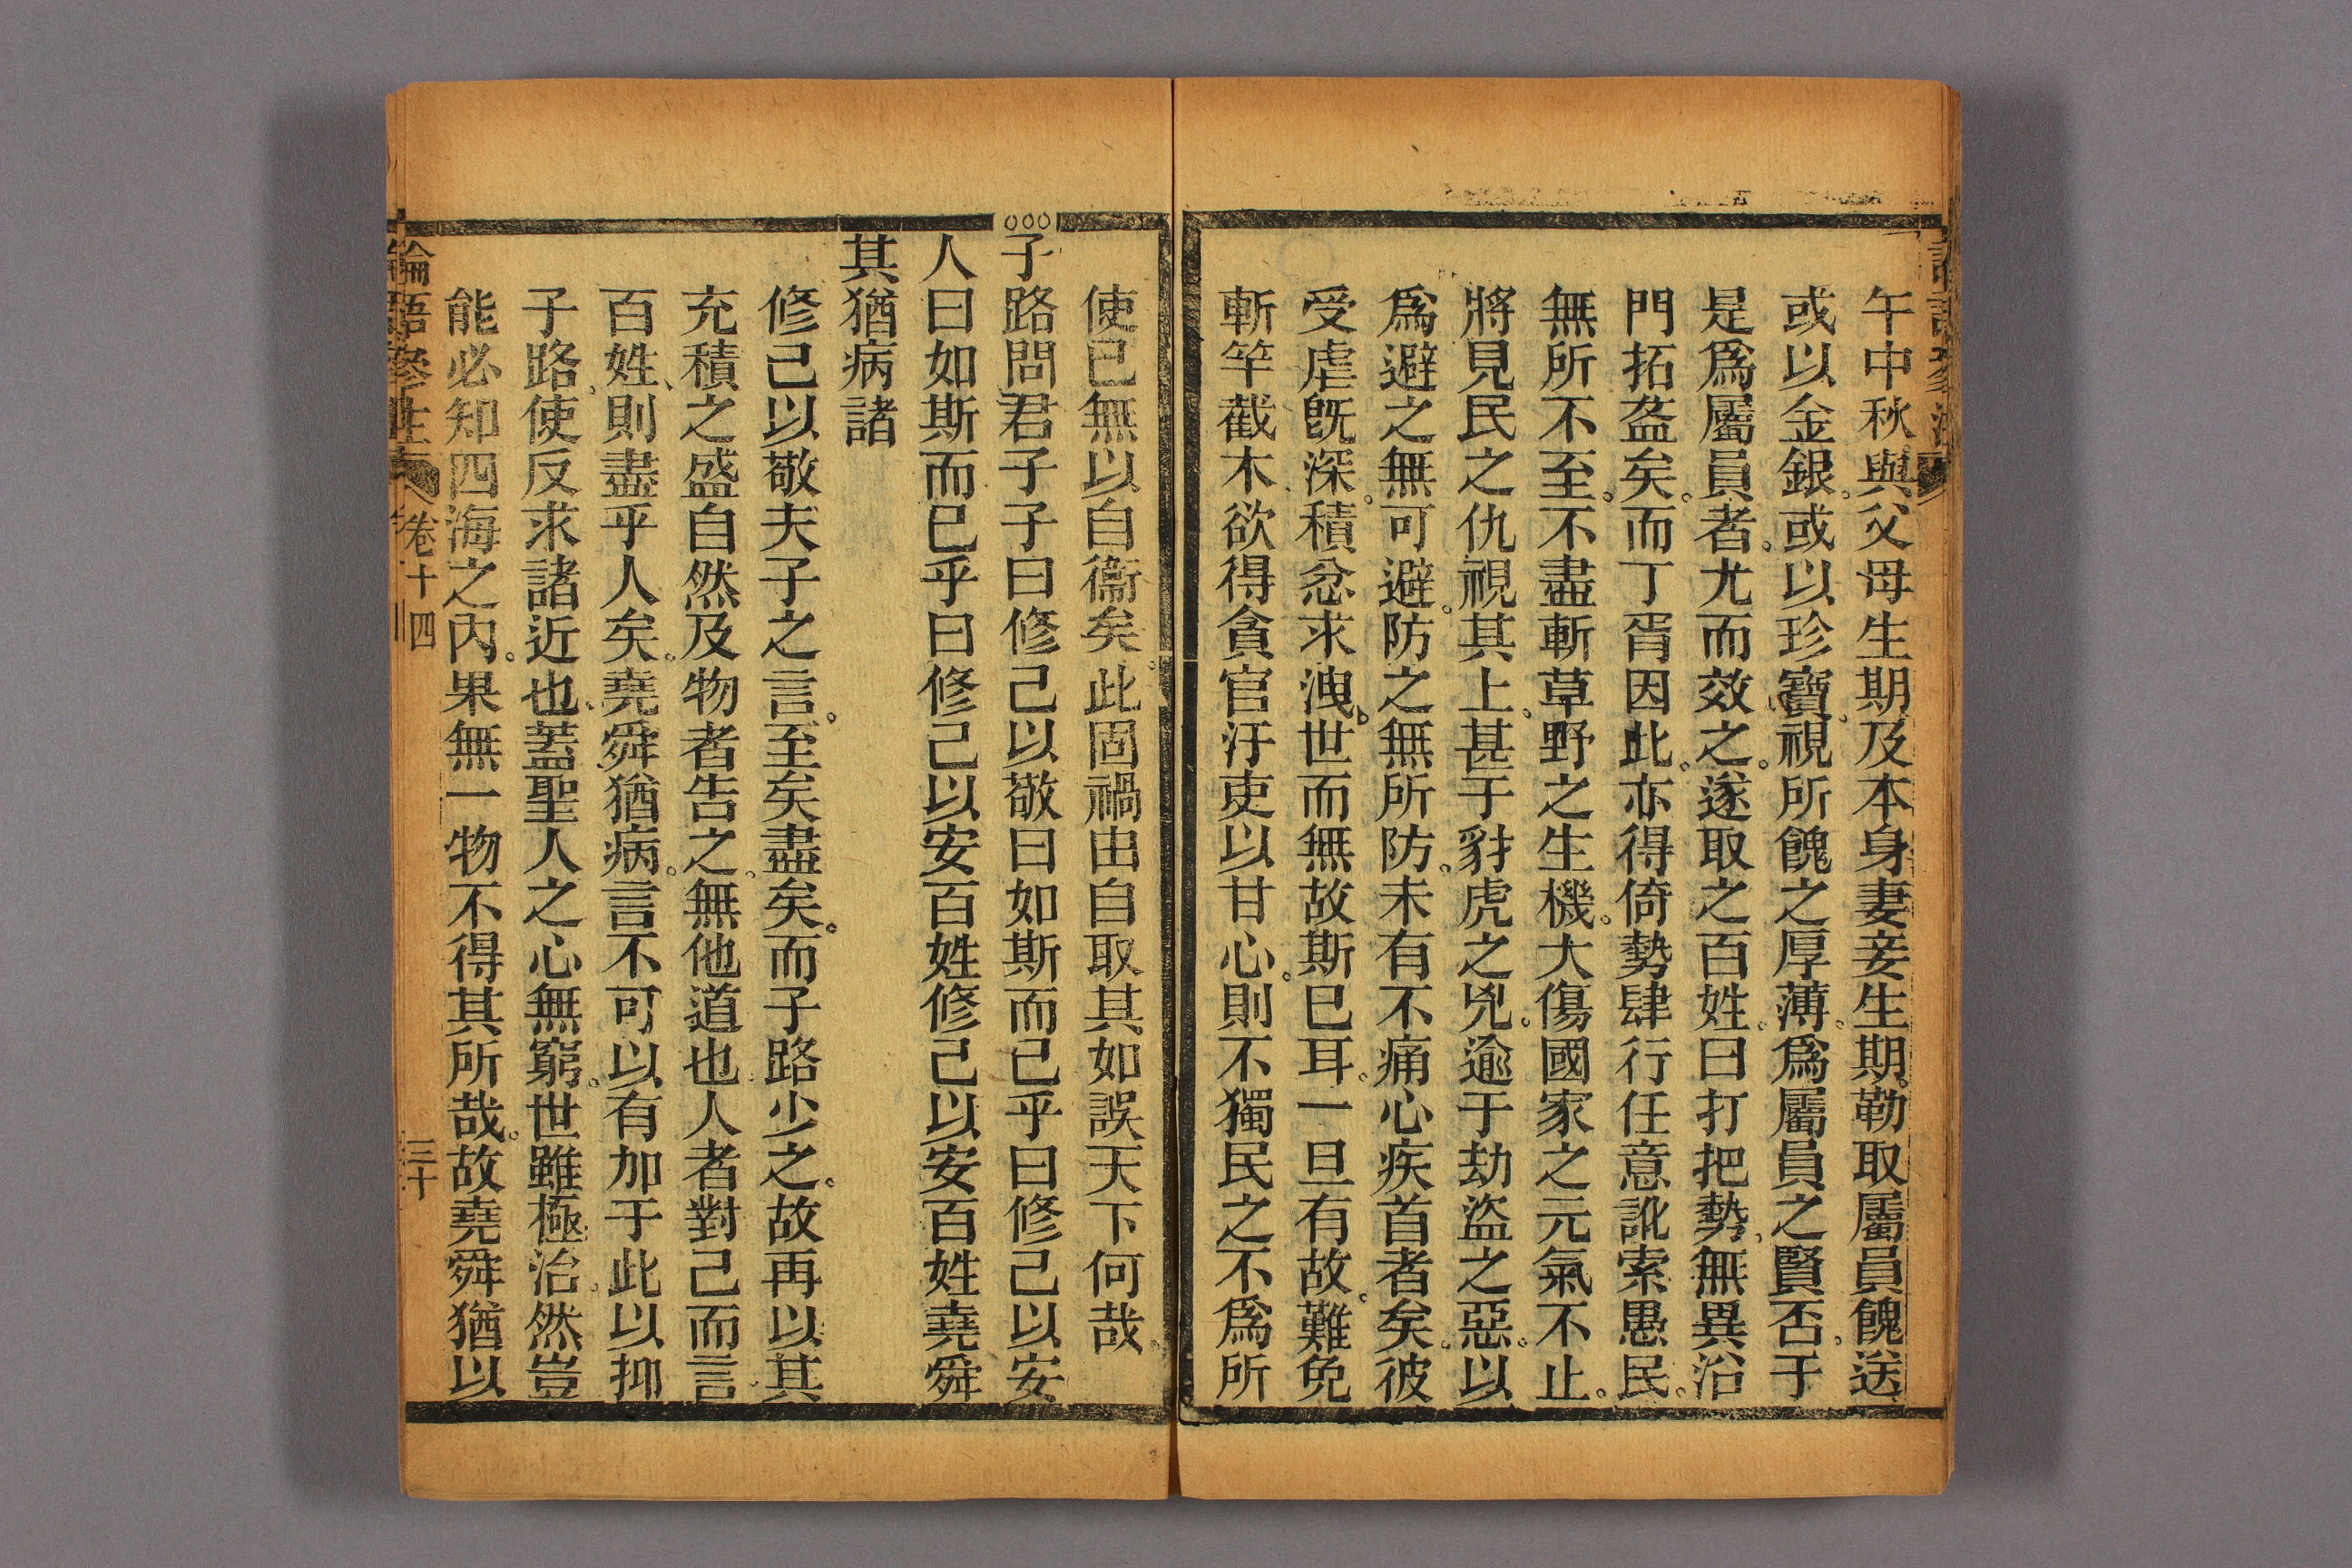 午中秋與父母生期及本身妻妾生期。勒取屬員餽送
或以金銀。或以珍寶。視所餽之厚薄。爲屬員之賢否。于
是爲屬員者。尤而效之。遂取之百姓。曰打把勢。無異沿
門拓盋矣。而丁胥因此。亦得倚勢肆行任意訛索愚民。
無所不至。不盡斬草野之生機。大傷國家之元氣不止。
將見民之仇視其上。甚于豺虎之兇。逾于劫盜之惡。以
爲避之無可避。防之無所防。未有不痛心疾首者矣。彼
受虐旣深。積忿求洩。世而無故斯巳耳。一旦有故。難免
斬竿截木。欲得貪官汙吏以甘心。則不獨民之不爲所
使已無以自衞矣。此固禍由自取其如誤天下何哉。
子路問君子子曰修己以敬曰如斯而己乎曰修己以安
人曰如斯而巳乎曰修己以安百姓修己以安百姓堯舜
其猶病諸
修己以敬夫子之言。至矣盡矣。而子路少之。故再以其
充積之盛自然及物者告之。無他道也。人者對己而言。
百姓、則盡乎人矣。堯舜猶病。言不可以有加于此以抑
子路。使反求諸近也。蓋聖人之心無窮。世雖極治。然豈
能必知四海之內。果無一物不得其所哉。故堯舜猶以
論語參注 卷十四 三十